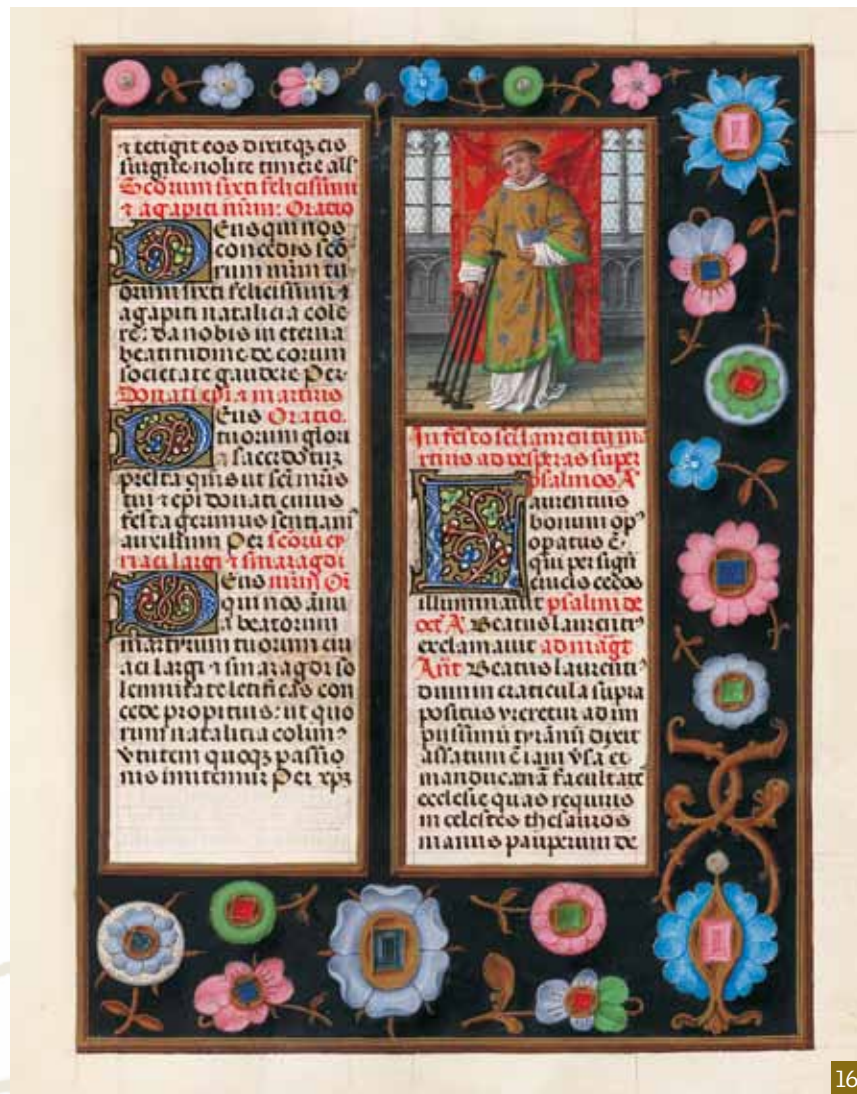 ⁊ tetigit eos dixitqꝫ eis
surgite nolite timere all'
Scõrum sixti felicissimi
⁊ agapiti mr̃m: Oratio
Deus qui nos
concedis scõ
rum mr̃m tu
orum sixti felicissimi ⁊
agapiti natalicia cole
re: da nobis in eterna
beatitudine de eorum
societate gaudere Per
Donati ep̃i ⁊ martiris
Deus Oratio.
tuorum glori
a sacerdotuꝫ
presta quis ut sc̃i mr̃is
tui ⁊ ep̃i donati cuius
festa gerimus senciam'
auxilium Per scõrũ cy
riaci largi ⁊ smaragdi
Deus mr̃m Or̃
qui nos ãnu
a beatorum
martirum tuorum ciri
aci largi ⁊ smaragdi so
lemnitate letificas con
cede propitius: ut quo
rum natalicia colim⁹
v̾tutem quoqꝫ passio
nis imitemur Per xp̃ꝫ
In festo sc̃i laurentij ma
rtiris ad vesperas super
psalmos A͂
Laurentius
bonum op⁹
opatus ẽ.
qui per signũ
crucis cecos
illuminauit psalmi de
oct̃ A͂. Beatus laurenti⁹
exclamauit ad mag̃t
Añt Beatus laurenti⁹
dum in craticula supra
positus vreretur ad im
piissimũ tyrãnũ dixit
assatum ẽ iam v̾sa et
manduca nã facultate
ecclesie quas requiris
in celestes thesauros
manus pauperum de
16